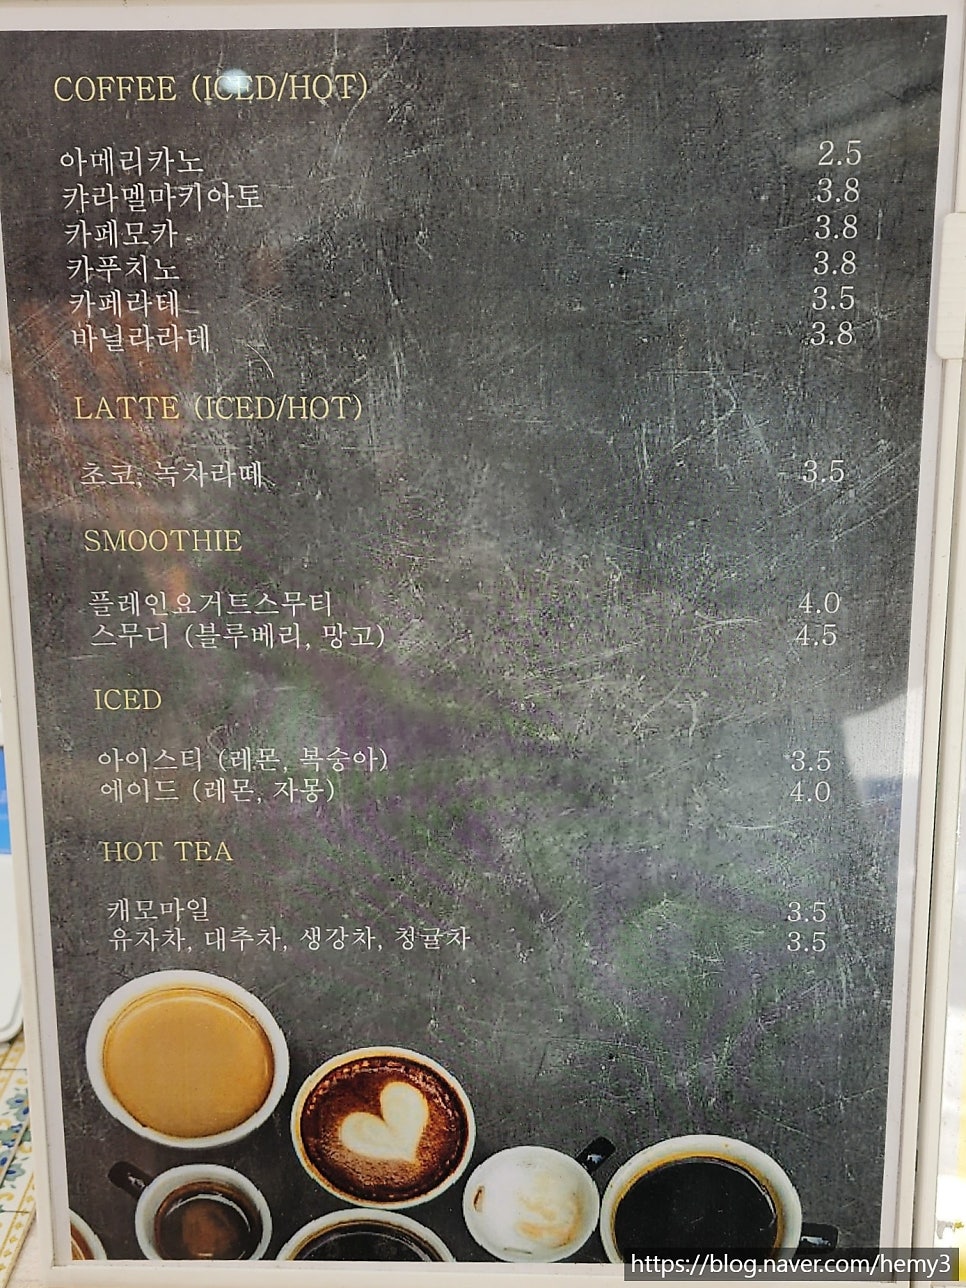 COFFEE (ICED/HOT)
아메리카노 2.5
캬라멜마키아토 3.8
카페모카 3.8
카푸치노 3.8
카페라테 3.5
바닐라라테 3.8
LATTE (ICED/HOT)
초코, 녹차라떼 3.5
SMOOTHIE
플레인요거트스무티 4.0
스무디 (블루베리, 망고) 4.5
ICED
아이스티 (레몬, 복숭아) 3.5
에이드 (레몬, 자몽) 4.0
HOT TEA
캐모마일 3.5
유자차, 대추차, 생강차, 청귤차 3.5
https://blog.naver.com/hemy3